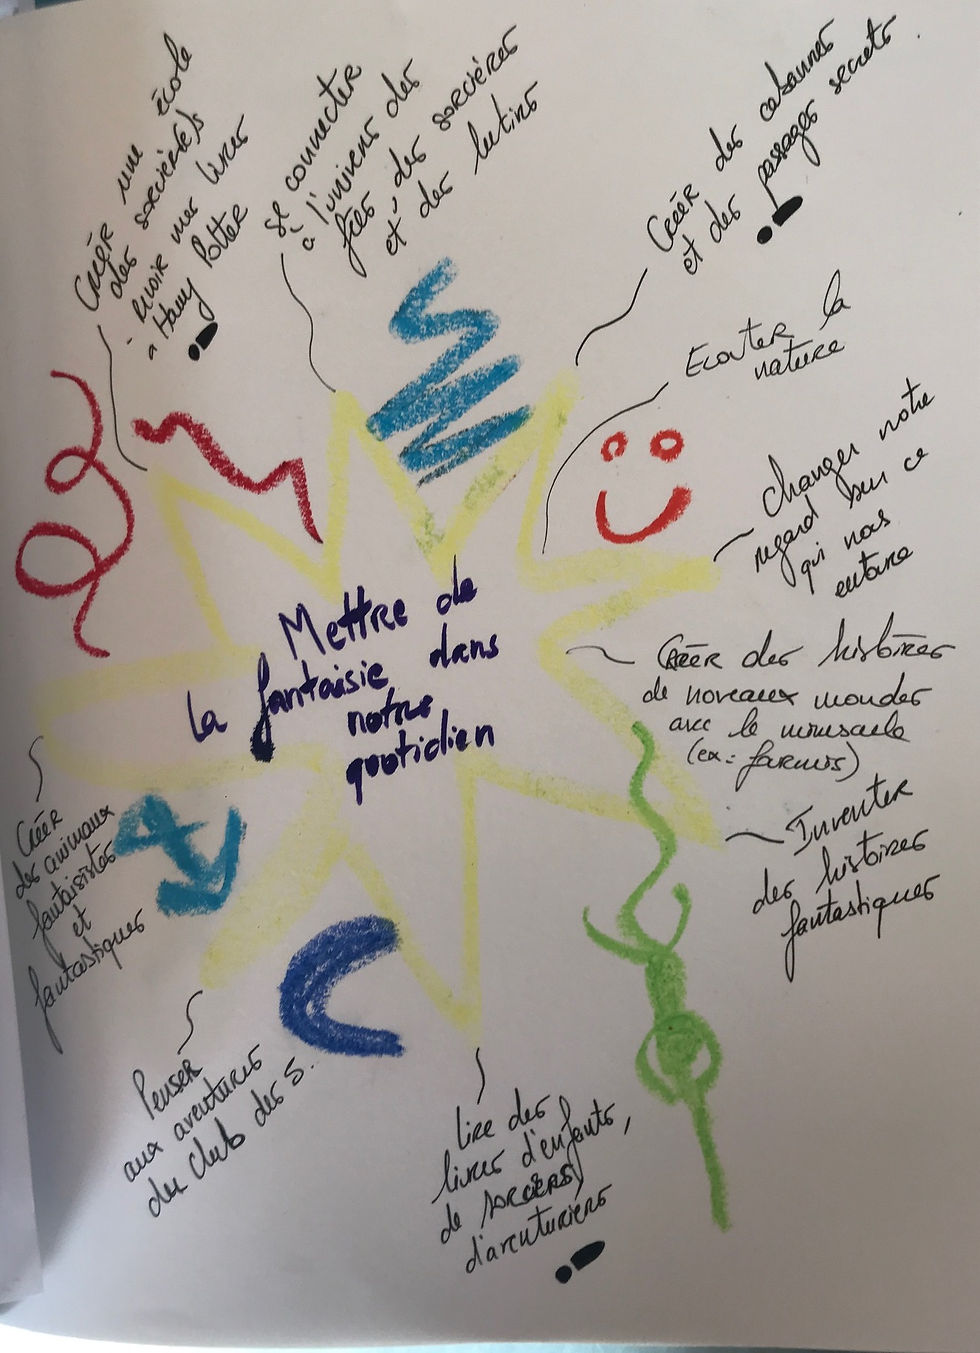 Mettre de
la fantaisie dans
notre
quotidien
Créer une école
des sorcièr(e)s
mes livres
à Harry Potter
!
se connecter
à l'univers des
fées, des sorcières
et des lutins
Créer des cabannes
et des passages secrets
!
Ecouter la
nature
Changer notre
regard sur ce
qui nous
entoure
Créer des histoires
de noveaux mondes
avec le minuscule
(ex: fourmis)
Inventer
des histoires
fantastiques
lire des
livres d'enfants,
de sorciers,
d'aventuriers
!
Penser
aux aventures
du club des 5..
Créer
des animaux
fantaisistes
et
fantastiques